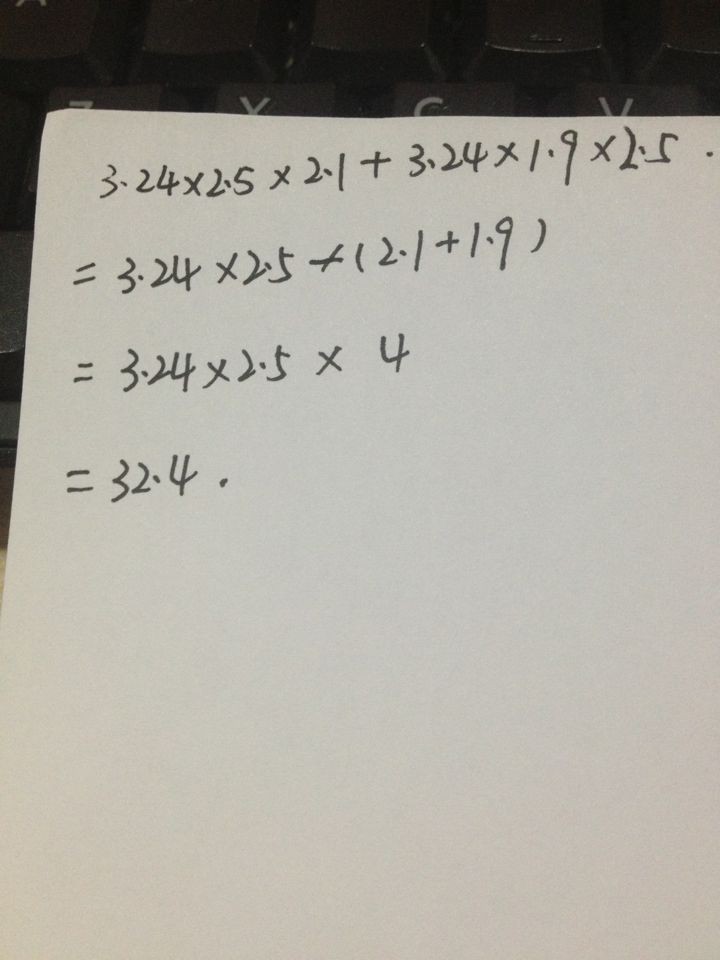 Z X C V
3.24×2.5×2.1+3.24×1.9×2.5.
=3.24×2.5×(2.1+1.9)
=3.24×2.5×4
=32.4.